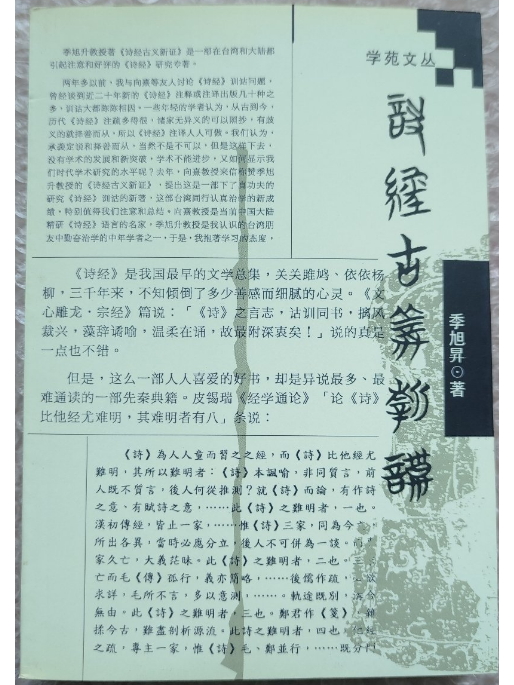 学苑文丛
詩經古義新證
季旭昇⊙著
季旭升教授著《诗经古义新证》是一部在台湾和大陆都
引起注意和好评的《诗经》研究专著。
两年多以前，我与向熹等友人讨论《诗经》训诂问题，
曾经谈到近二十年新的《诗经》注释或译注出版几十种之
多，训诂大都陈陈相因。一些年轻的学者认为，从古到今，
历代《诗经》注疏多得很，诸家无异义的可以照抄，有歧
义的就择善而从，所以《诗经》注译人人可做。我们认为，
承袭定诂和择善而从，当然不是不可以，但是这样下去，
没有学术的发展和新突破，学术不能进步，又如何显示我
们时代学术研究的水平呢？去年，向熹教授来信称赞季旭
升教授的《诗经古义新证》，提出这是一部下了真功夫的
研究《诗经》训诂的新著，这部台湾同行认真治学的新成
绩，特别值得我们注意和总结。向熹教授是当前中国大陆
精研《诗经》语言的名家，季旭升教授是我认识的台湾朋
友中勤奋治学的中年学者之一，于是，我抱著学习的态度，
《诗经》是我国最早的文学总集，关关雎鸠、依依杨
柳，三千年来，不知倾倒了多少善感而细腻的心灵。《文
心雕龙·宗经》篇说：「《诗》之言志，诂训同书，摛风
裁兴，藻辞谲喻，温柔在诵，故最附深衷矣！」说的真是
一点也不错。
但是，这么一部人人喜爱的好书，却是异说最多、最
难通读的一部先秦典籍。皮锡瑞《经学通论》「论《诗》
比他经尤难明，其难明者有八」条说：
《詩》為人人童而習之之經，而《詩》比他經尤
難明，其所以難明者：《詩》本諷喻，非同質言，前
人既不質言，後人何從推測？就《詩》而論，有作詩
之意，有賦詩之意，……此《詩》之難明者，一也。
漢初傳經，皆止一家，……惟《詩》三家，同為今
所出各異，當時必應分立，後人不可併為一談。而
家久亡，大義茫昧。此《詩》之難明者，二也。三
亡而毛《傳》孤行，義亦簡略，……後儒作疏，欲
求詳，毛所不言，多以意測，……。軌途既別，
無由。此《詩》之難明者，三也。鄭君作《箋》，雜
揉今古，雖盡剖析源流。此詩之難明者，四也。他經
之疏，專主一家，惟《詩》毛、鄭並行，……既分門